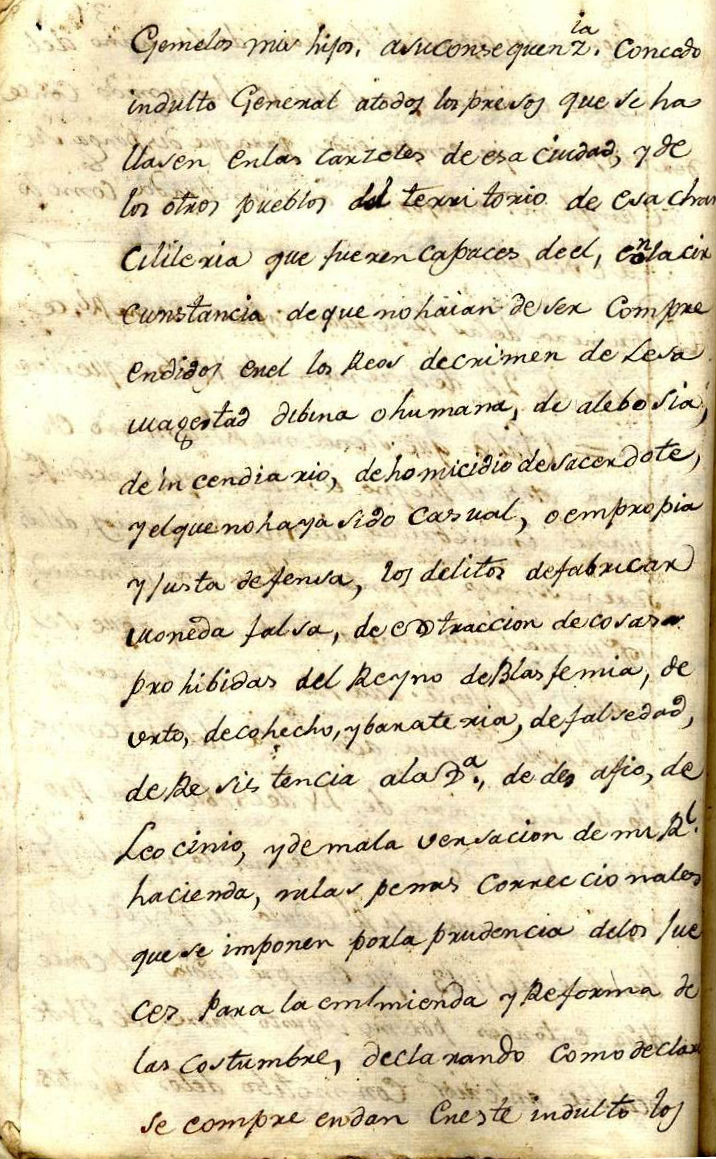 Gemelos mis hijos, a suconsequenz.ia concedo
indulto General atodos los presos que se ha
llasen enlas carzeles de esa ciudad, y de
los otros pueblos del territorio de esa chan
cilileria que fueren capaces deel, en la cir
cunstancia de que no haian de ser compre
endidos enel los Reos decrimen de Lesa
magestad dibina o humana, de alebosia,
de incendiario, de homicidio de sacerdote,
y el que no haya sido casual, o em propia
y justa defensa, los delitos defabricar
moneda falsa, de extraccion de cosas
prohibidas del Reyno de Blasfemia, de
urto, de cohecho, y barateria, de falsedad,
de Resistencia ala J.a, de desafio, de
Leocinio, y de mala versacion de mi R.l
hacienda, ni las penas correccionales
que se imponen por la prudencia delos Jue
ces para la emmienda y Reforma de
las costumbre, declarando como declar
se compreendan eneste indulto los